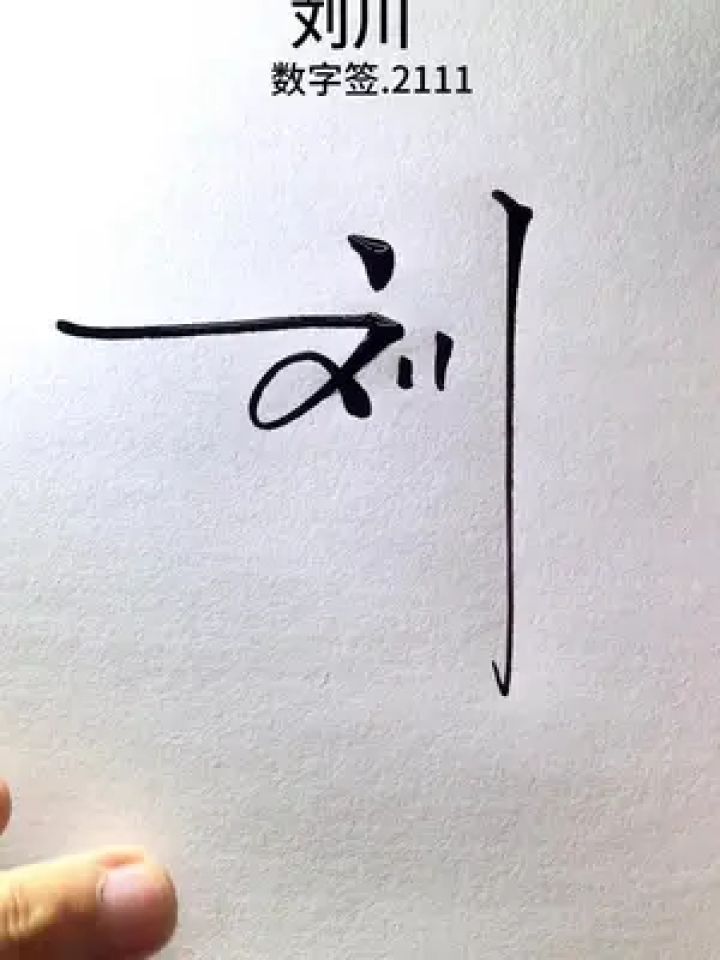 刘川
数字签.2111
刘